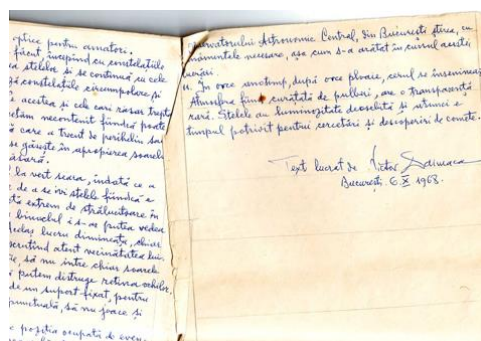 optice pentru amatori.
făcut, începînd cu constelațiile
stelelor și se continuă cu cele
constelațiile circumpolare și
acestea și cele cari răsar trepta
necontenit fiindcă poate
care a trecut de periheliu sau
se găsește în apropierea soarelui
la vest seara, îndată ce a
de a se ivi stelele fiindcă e
extrem de strălucitoare în
binoclul s-ar putea vedea
lucru dimineața, chiar
scrutînd atent vecinătatea lui
să nu intre chiar soarele
putem distruge retina ochilor,
de un suport fixat, pentru
să nu joace și
poziția ocupată de
Observatorului Astronomic Central, din București știrea, cu
necesare, așa cum s-a arătat în cursul acestei
lucrări.
În orce anotimp, după orce ploaie, cerul se înseninează
Atmosfera fiind curățată de pulberi, are o transparență
rară. Stelele au luminozitate deosebită și atunci e
timpul potrivit pentru cercetări și descoperiri de comete.
Text lucrat de Victor Daimaca
București 6.X 1968.